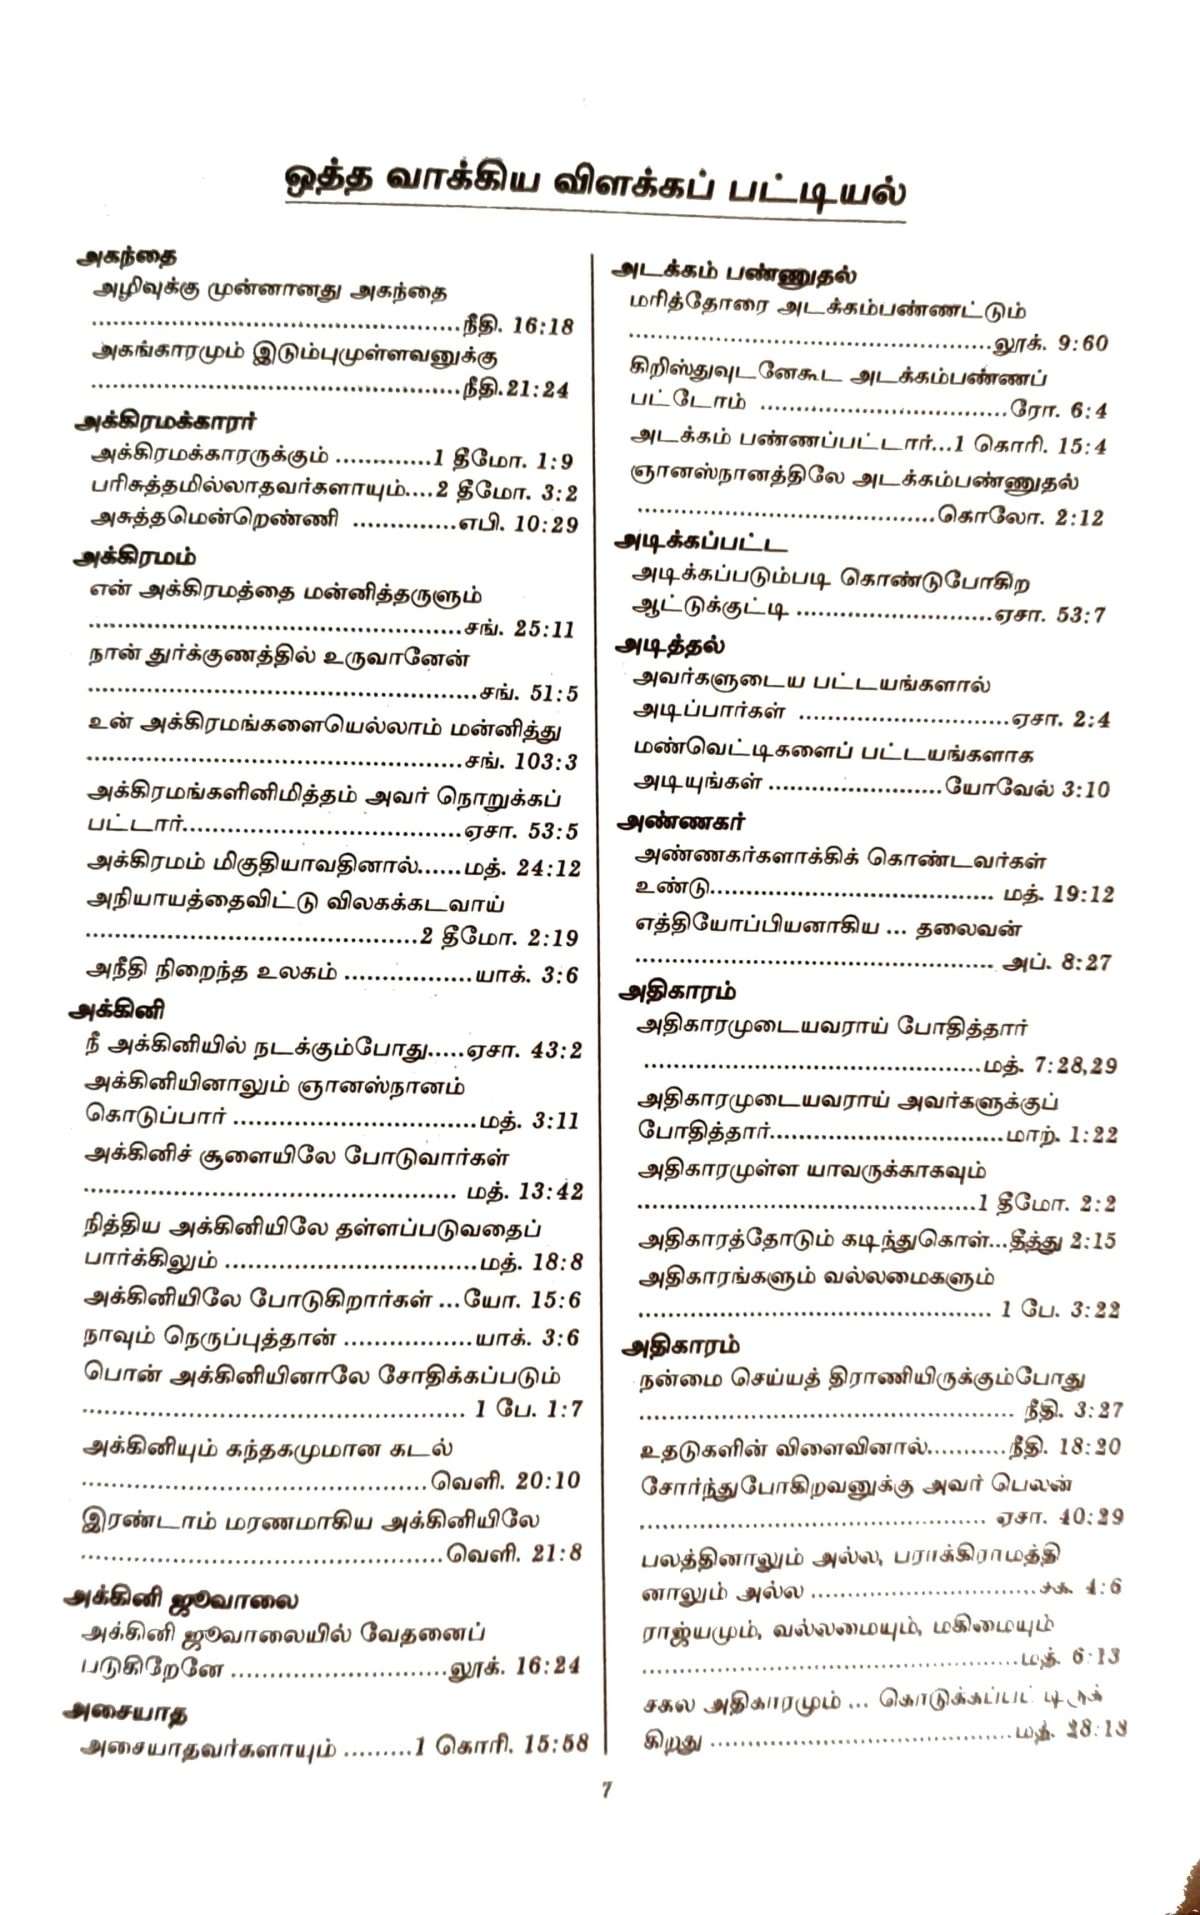 ஒத்த வாக்கிய விளக்கப் பட்டியல்
அகந்தை
அழிவுக்கு முன்னானது அகந்தை
..................................................நீதி. 16:18
அகங்காரமும் இடும்புமுள்ளவனுக்கு
..................................................நீதி.21:24
அக்கிரமக்காரர்
அக்கிரமக்காரருக்கும் .............1 தீமோ. 1:9
பரிசுத்தமில்லாதவர்களாயும்....2 தீமோ. 3:2
அசுத்தமென்றெண்ணி ..............எபி. 10:29
அக்கிரமம்
என் அக்கிரமத்தை மன்னித்தருளும்
..................................................சங். 25:11
நான் துர்க்குணத்தில் உருவானேன்
.....................................................சங். 51:5
உன் அக்கிரமங்களையெல்லாம் மன்னித்து
..................................................சங். 103:3
அக்கிரமங்களினிமித்தம் அவர் நொறுக்கப்
பட்டார்......................................ஏசா. 53:5
அக்கிரமம் மிகுதியாவதினால்......மத். 24:12
அநியாயத்தைவிட்டு விலகக்கடவாய்
.............................................2 தீமோ. 2:19
அநீதி நிறைந்த உலகம் .................யாக். 3:6
அக்கினி
நீ அக்கினியில் நடக்கும்போது.....ஏசா. 43:2
அக்கினியினாலும் ஞானஸ்நானம்
கொடுப்பார் .................................மத். 3:11
அக்கினிச் சூளையிலே போடுவார்கள்
.................................................. மத். 13:42
நித்திய அக்கினியிலே தள்ளப்படுவதைப்
பார்க்கிலும் ..................................மத். 18:8
அக்கினியிலே போடுகிறார்கள் ...யோ. 15:6
நாவும் நெருப்புத்தான் .................யாக். 3:6
பொன் அக்கினியினாலே சோதிக்கப்படும்
.................................................... 1 பே. 1:7
அக்கினியும் கந்தகமுமான கடல்
...............................................வெளி. 20:10
இரண்டாம் மரணமாகிய அக்கினியிலே
.................................................வெளி. 21:8
அக்கினி ஜூவாலை
அக்கினி ஜூவாலையில் வேதனைப்
படுகிறேனே .............................லூக். 16:24
அசையாத
அசையாதவர்களாயும் .........1 கொரி. 15:58
அடக்கம் பண்ணுதல்
மரித்தோரை அடக்கம்பண்ணட்டும்
.................................................லூக். 9:60
கிறிஸ்துவுடனேகூட அடக்கம்பண்ணப்
பட்டோம் ..................................ரோ. 6:4
அடக்கம் பண்ணப்பட்டார்...1 கொரி. 15:4
ஞானஸ்நானத்திலே அடக்கம்பண்ணுதல்
........................................கொலோ. 2:12
அடிக்கப்பட்ட
அடிக்கப்படும்படி கொண்டுபோகிற
ஆட்டுக்குட்டி ...........................ஏசா. 53:7
அடித்தல்
அவர்களுடைய பட்டயங்களால்
அடிப்பார்கள் .............................ஏசா. 2:4
மண்வெட்டிகளைப் பட்டயங்களாக
அடியுங்கள் ........................யோவேல் 3:10
அண்ணகர்
அண்ணகர்களாக்கிக் கொண்டவர்கள்
உண்டு....................................... மத். 19:12
எத்தியோப்பியனாகிய ... தலைவன்
................................................. அப். 8:27
அதிகாரம்
அதிகாரமுடையவராய் போதித்தார்
..............................................மத். 7:28,29
அதிகாரமுடையவராய் அவர்களுக்குப்
போதித்தார்................................மாற். 1:22
அதிகாரமுள்ள யாவருக்காகவும்
..............................................1 தீமோ. 2:2
அதிகாரத்தோடும் கடிந்துகொள்...தீத்து 2:15
அதிகாரங்களும் வல்லமைகளும்
................................................ 1 பே. 3:22
அதிகாரம்
நன்மை செய்யத் திராணியிருக்கும்போது
................................................... நீதி. 3:27
உதடுகளின் விளைவினால்...........நீதி. 18:20
சோர்ந்துபோகிறவனுக்கு அவர் பெலன்
............................................... ஏசா. 40:29
பலத்தினாலும் அல்ல, பராக்கிராமத்தி
னாலும் அல்ல ............................... 4:6
ராஜ்யமும், வல்லமையும், மகிமையும்
...................................................மத். 6:13
சகல அதிகாரமும் ...
கிறது .........................................மத். 28:18
7